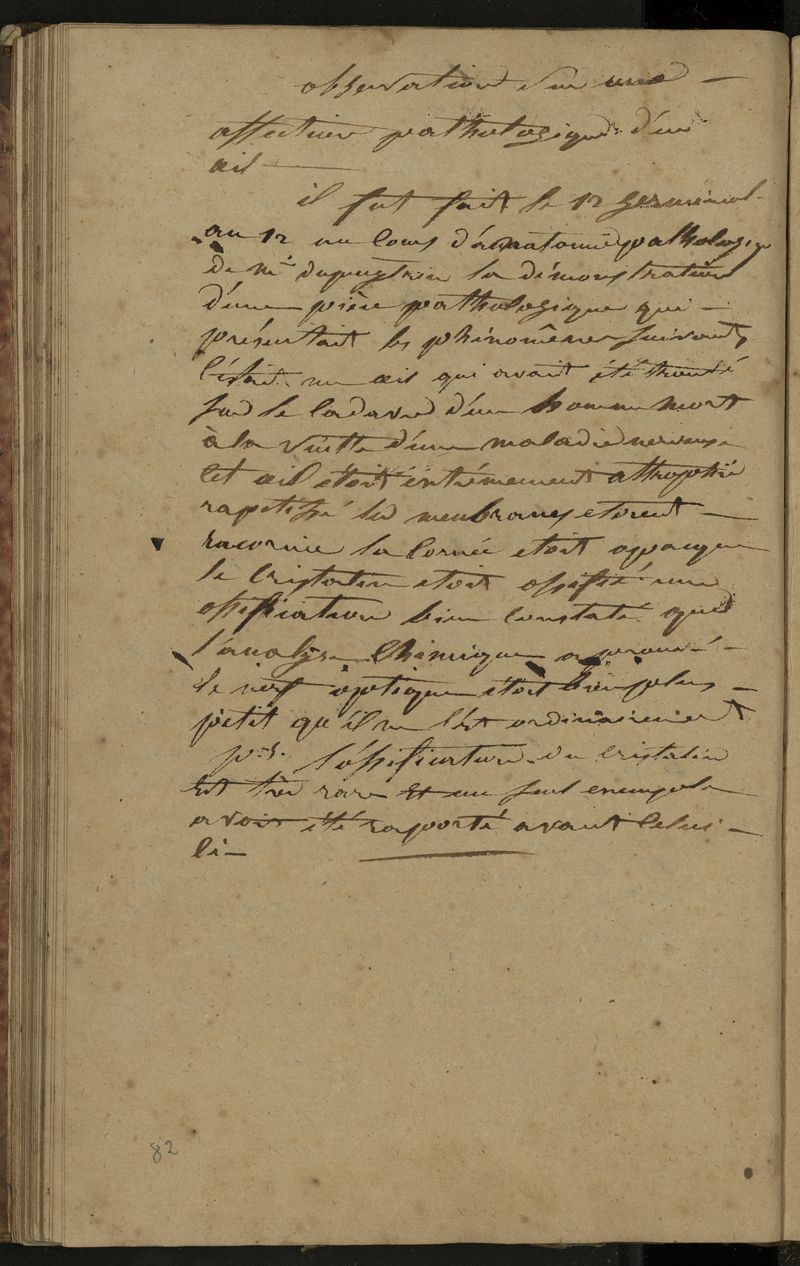 observation sur une —
affection pathologique d'un
œil —
il fut fait le 12 germinal
an 12 au Cours d'anatomie pathologiq
de mr dupuytrin la démonstration
d'une pièce pathologique qui —
présentait les phénomènes suivants
C'était un œil qui avait été trouvé
sur le Cadavre d'un homme mort
à la suitte d'une maladie nerveuse
Cet œil étoit extrêmement atrophié
rapetissé les membranes etoient —
racornie la Cornée etoit opaque
le Cristalin etoit ossifié une
ossification bien Constaté que
l'analyse Chimique a prouvé —
le nerf optique étoit bien plus —
petit qu'il ne l'est ordinairement
p.s. l'ossification du Cristalin
est très rare et un seul exemple
avoit été raporté avant Celui —
Ci —
82